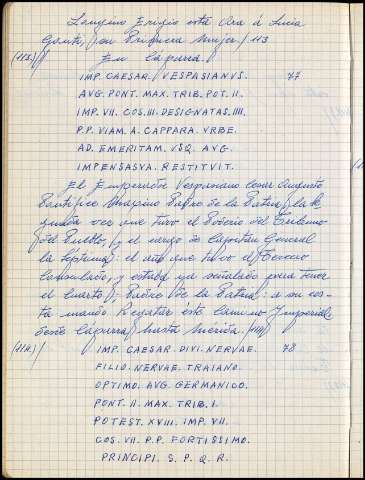 Longino Erigio esta Ara á Lucia
Gante, su Primera Mujer./113
(113)/ En Caparra.
IMP. CAESAR. VESPASIANVS. 77
AVG. PONT. MAX. TRIB. POT. II.
IMP. VII. COS. III. DESIGNATAS. IIII.
P.P. VIAM. A. CAPPARA. VRBE.
AD. EMERITAM. VSQ. AVG.
IMPENSASVA. RESTITVIT.
El Emperador Vespasiano Cesar Augusto
Pontifice Maximo Padre de la Patria, la
vez que tuvo el Poderio del Tribuno
del Pueblo, y el cargo de Capitan General
la septima: el año que tuvo el Tercero
Consulado, y estaba ya señalado para tener
el cuarto; Padre de la Patria: a su cos-
ta mando Reparar este camino Imperial
desde Caparra hasta Merida./114
(114)/ IMP. CAESAR. DIVI. NERVAE. 78
FILIO. NERVAE. TRAIANO.
OPTIMO. AVG. GERMANICO.
PONT. II. MAX. TRIB. I.
POTEST. XVIII. IMP. VII.
COS. VII. P.P. FORTISSIMO.
PRINCIPI. S. P. Q. R.